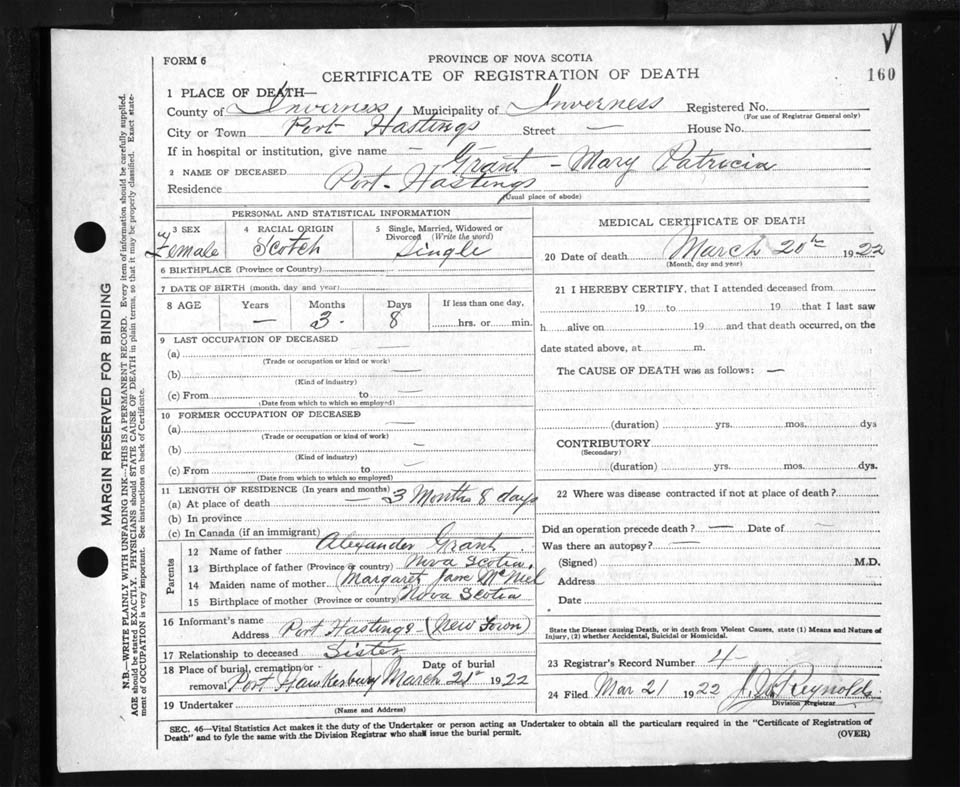 FORM 6
PROVINCE OF NOVA SCOTIA
CERTIFICATE OF REGISTRATION OF DEATH
160
1 PLACE OF DEATH—
County of Inverness Municipality of Inverness Registered No.
(For use of Registrar General only)
City or Town Port Hastings Street — House No.
If in hospital or institution, give name —
2 NAME OF DECEASED Grant - Mary Patricia
Residence Port-Hastings
(Usual place of abode)
PERSONAL AND STATISTICAL INFORMATION
3 SEX 4 RACIAL ORIGIN 5 Single, Married, Widowed or Divorced (Write the word)
Female Scotch Single
6 BIRTHPLACE (Province or Country)
7 DATE OF BIRTH (month, day and year)
8 AGE Years Months Days If less than one day,
— 3 8 hrs. or min.
9 LAST OCCUPATION OF DECEASED
(a) —
(Trade or occupation or kind of work)
(b) —
(Kind of industry)
(c) From to —
(Date from which to which so employed)
10 FORMER OCCUPATION OF DECEASED
(a) —
(Trade or occupation or kind of work)
(b) —
(Kind of industry)
(c) From to —
(Date from which to which so employed)
11 LENGTH OF RESIDENCE (In years and months)
(a) At place of death — 3 Months 8 days
(b) In province
(c) In Canada (if an immigrant)
Parents
12 Name of father Alexander Grant
13 Birthplace of father (Province or country) Nova Scotia.
14 Maiden name of mother (Margaret Jane McNiel
15 Birthplace of mother (Province or country) Nova Scotia
16 Informant's name
Address Port Hastings (New Town)
17 Relationship to deceased Sister
18 Place of burial, cremation or Date of burial
removal Port Hawkesbury March 21st 1922
19 Undertaker
(Name and Address)
MEDICAL CERTIFICATE OF DEATH
20 Date of death March 20th 1922
(Month, day and year)
21 I HEREBY CERTIFY, that I attended deceased from
19 to 19 that I last saw
h alive on 19 and that death occurred, on the
date stated above, at m.
The CAUSE OF DEATH was as follows: —
(duration) yrs. mos. dys
CONTRIBUTORY
(Secondary)
(duration) yrs. mos. dys.
22 Where was disease contracted if not at place of death?
Did an operation precede death? — Date of —
Was there an autopsy? —
(Signed) M.D.
Address
Date
State the Disease causing Death, or in death from Violent Causes, state (1) Means and Nature of
Injury, (2) whether Accidental, Suicidal or Homicidal.
23 Registrar's Record Number 4
24 Filed Mar 21 1922 Reynolds
Division Registrar
SEC. 46—Vital Statistics Act makes it the duty of the Undertaker or person acting as Undertaker to obtain all the particulars required in the "Certificate of Registration of
Death" and to fyle the same with the Division Registrar who shall issue the burial permit.
(OVER)
MARGIN RESERVED FOR BINDING
N.B.—WRITE PLAINLY WITH UNFADING INK—THIS IS A PERMANENT RECORD. Every item of information should be carefully supplied.
AGE should be stated EXACTLY. PHYSICIANS should STATE CAUSE OF DEATH in plain terms, so that it may be properly classified. Exact state-
ment of OCCUPATION is very important. See instructions on back of Certificate.